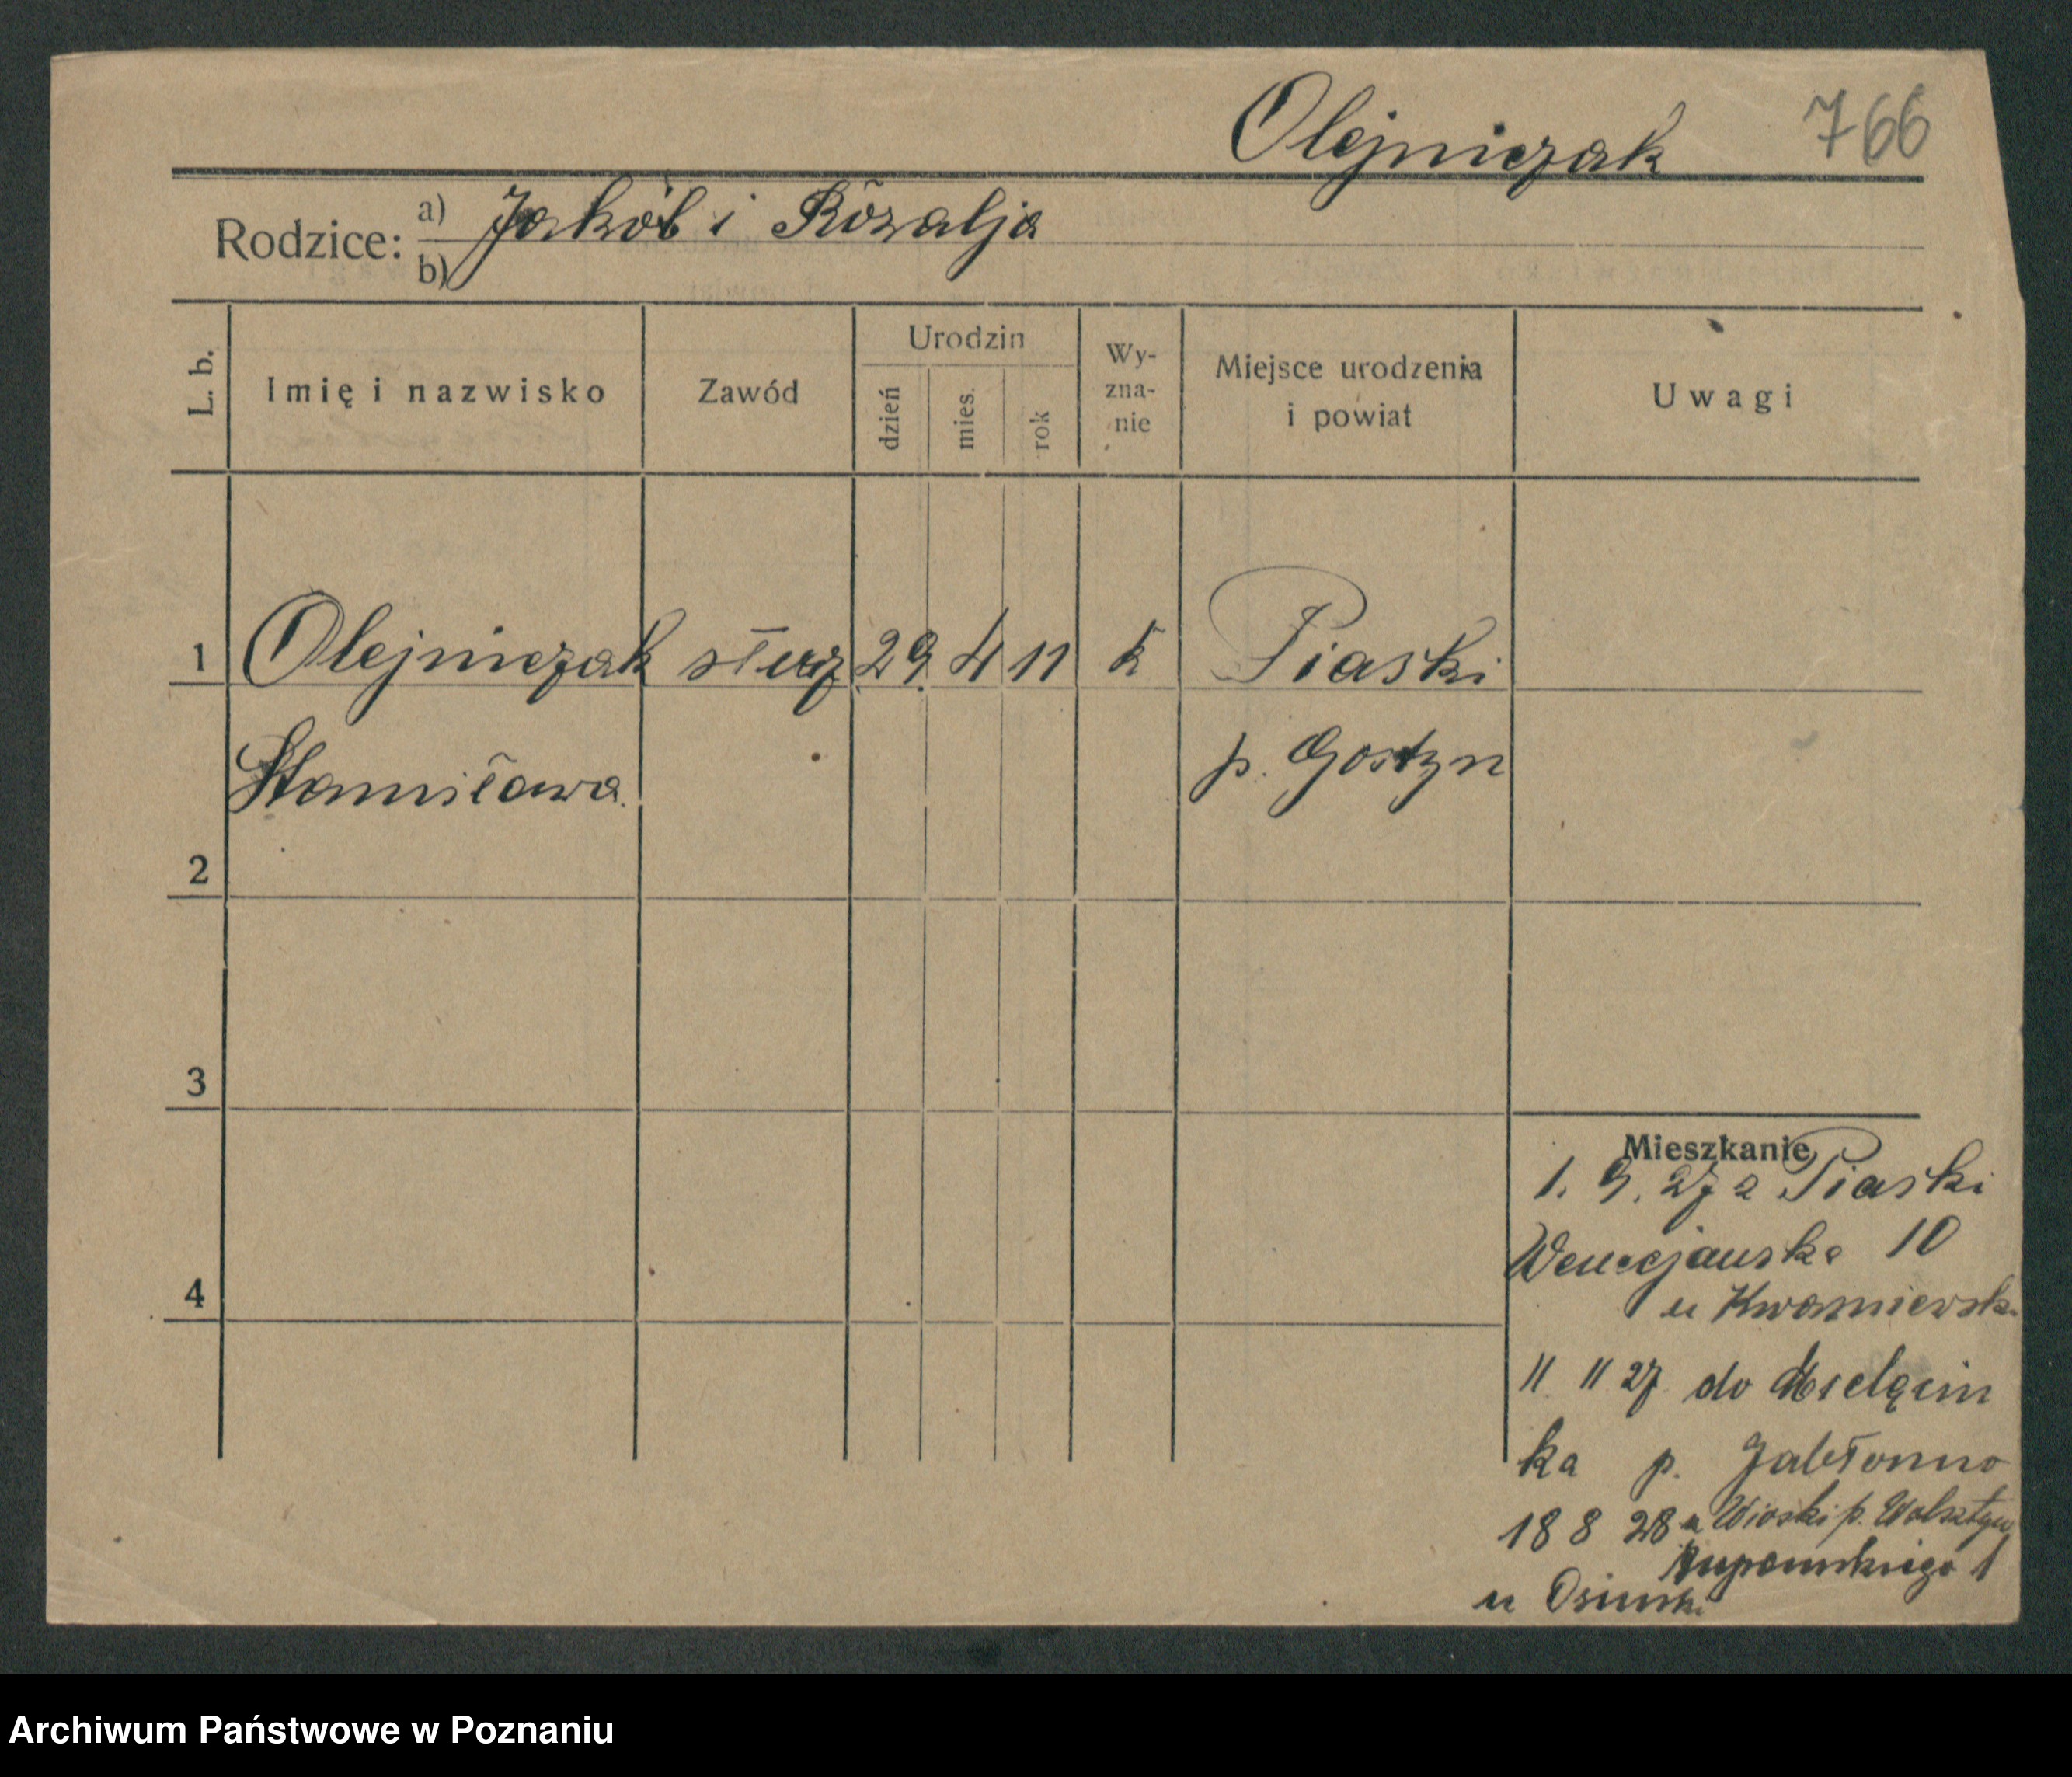 Olejniczak 766
Rodzice: a) Jakób i Rozalja
b)
L. b. Imię i nazwisko Zawód Urodzin dzień mies. rok Wy-zna-nie Miejsce urodzenia i powiat Uwagi
1 Olejniczak służ 29 4 11 k Piaski
Stanisława p. Gostyn
2
3
4
Mieszkanie
1. 9. 27 z Piaski
Wenecjańska 10
u
11 11 27 do
ka p. Jabłonno
18 8 28 Wioski p. Wolsztyn
1
u Osinski
Archiwum Państwowe w Poznaniu